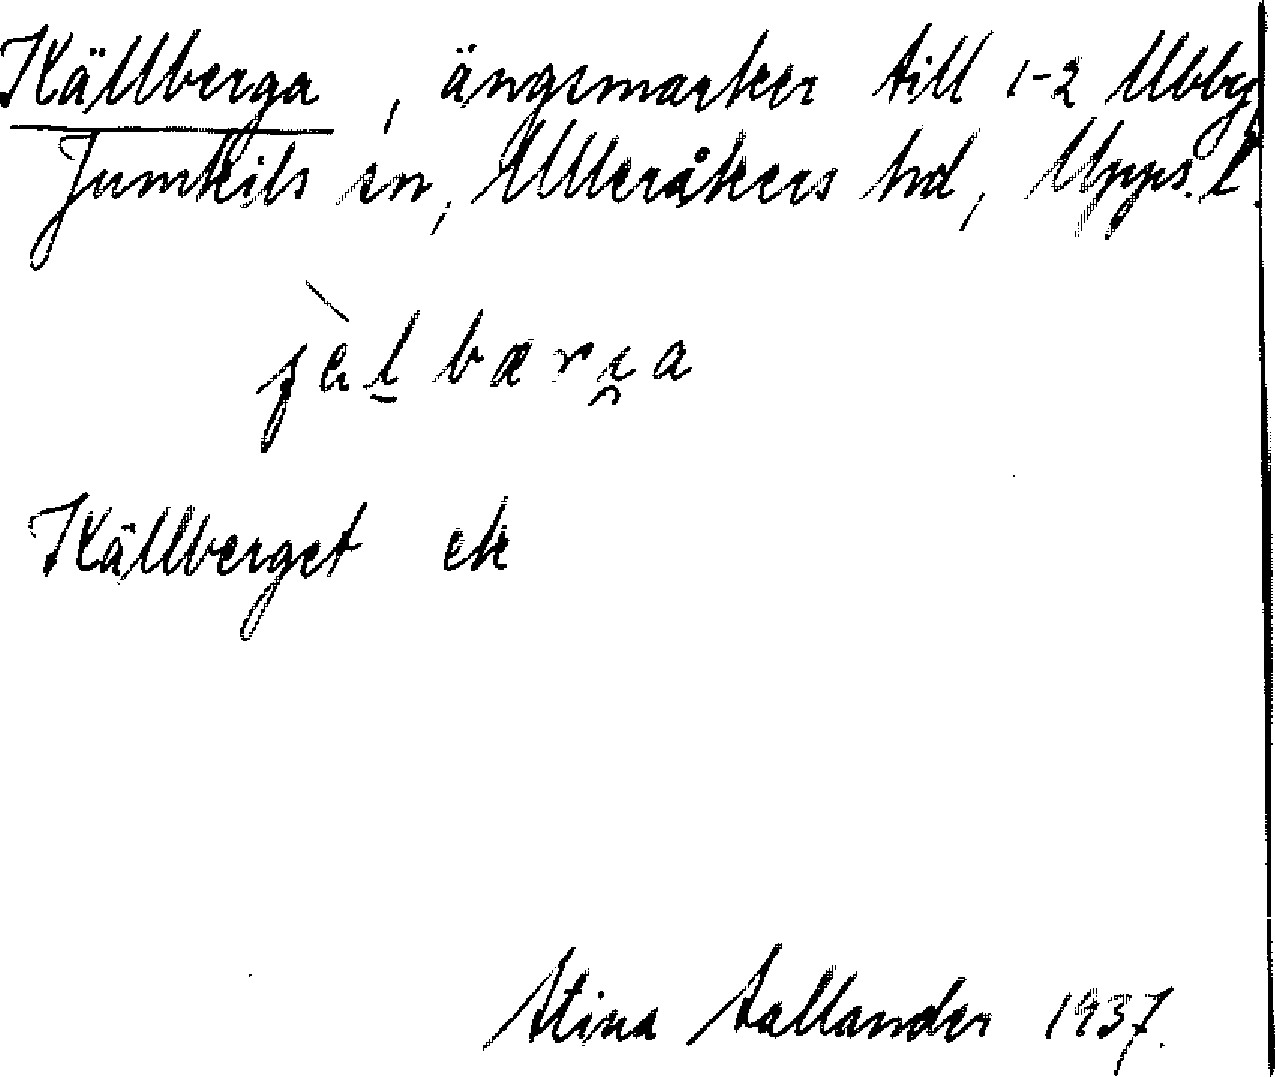 Källberga, ängsmarker till 1-2 Ubby
Jumkils sn, Ulleråkers hd, Upps. l.
Källberget ek
Stina Sallander 1937.